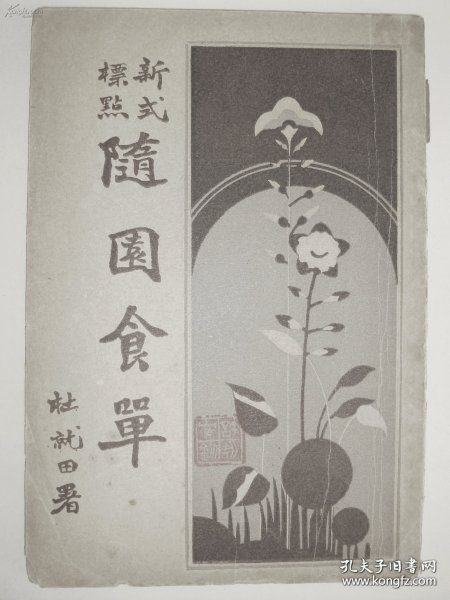 新式
標點
隨園食單
杜就田署
孔夫子旧书网
www.kongfz.com